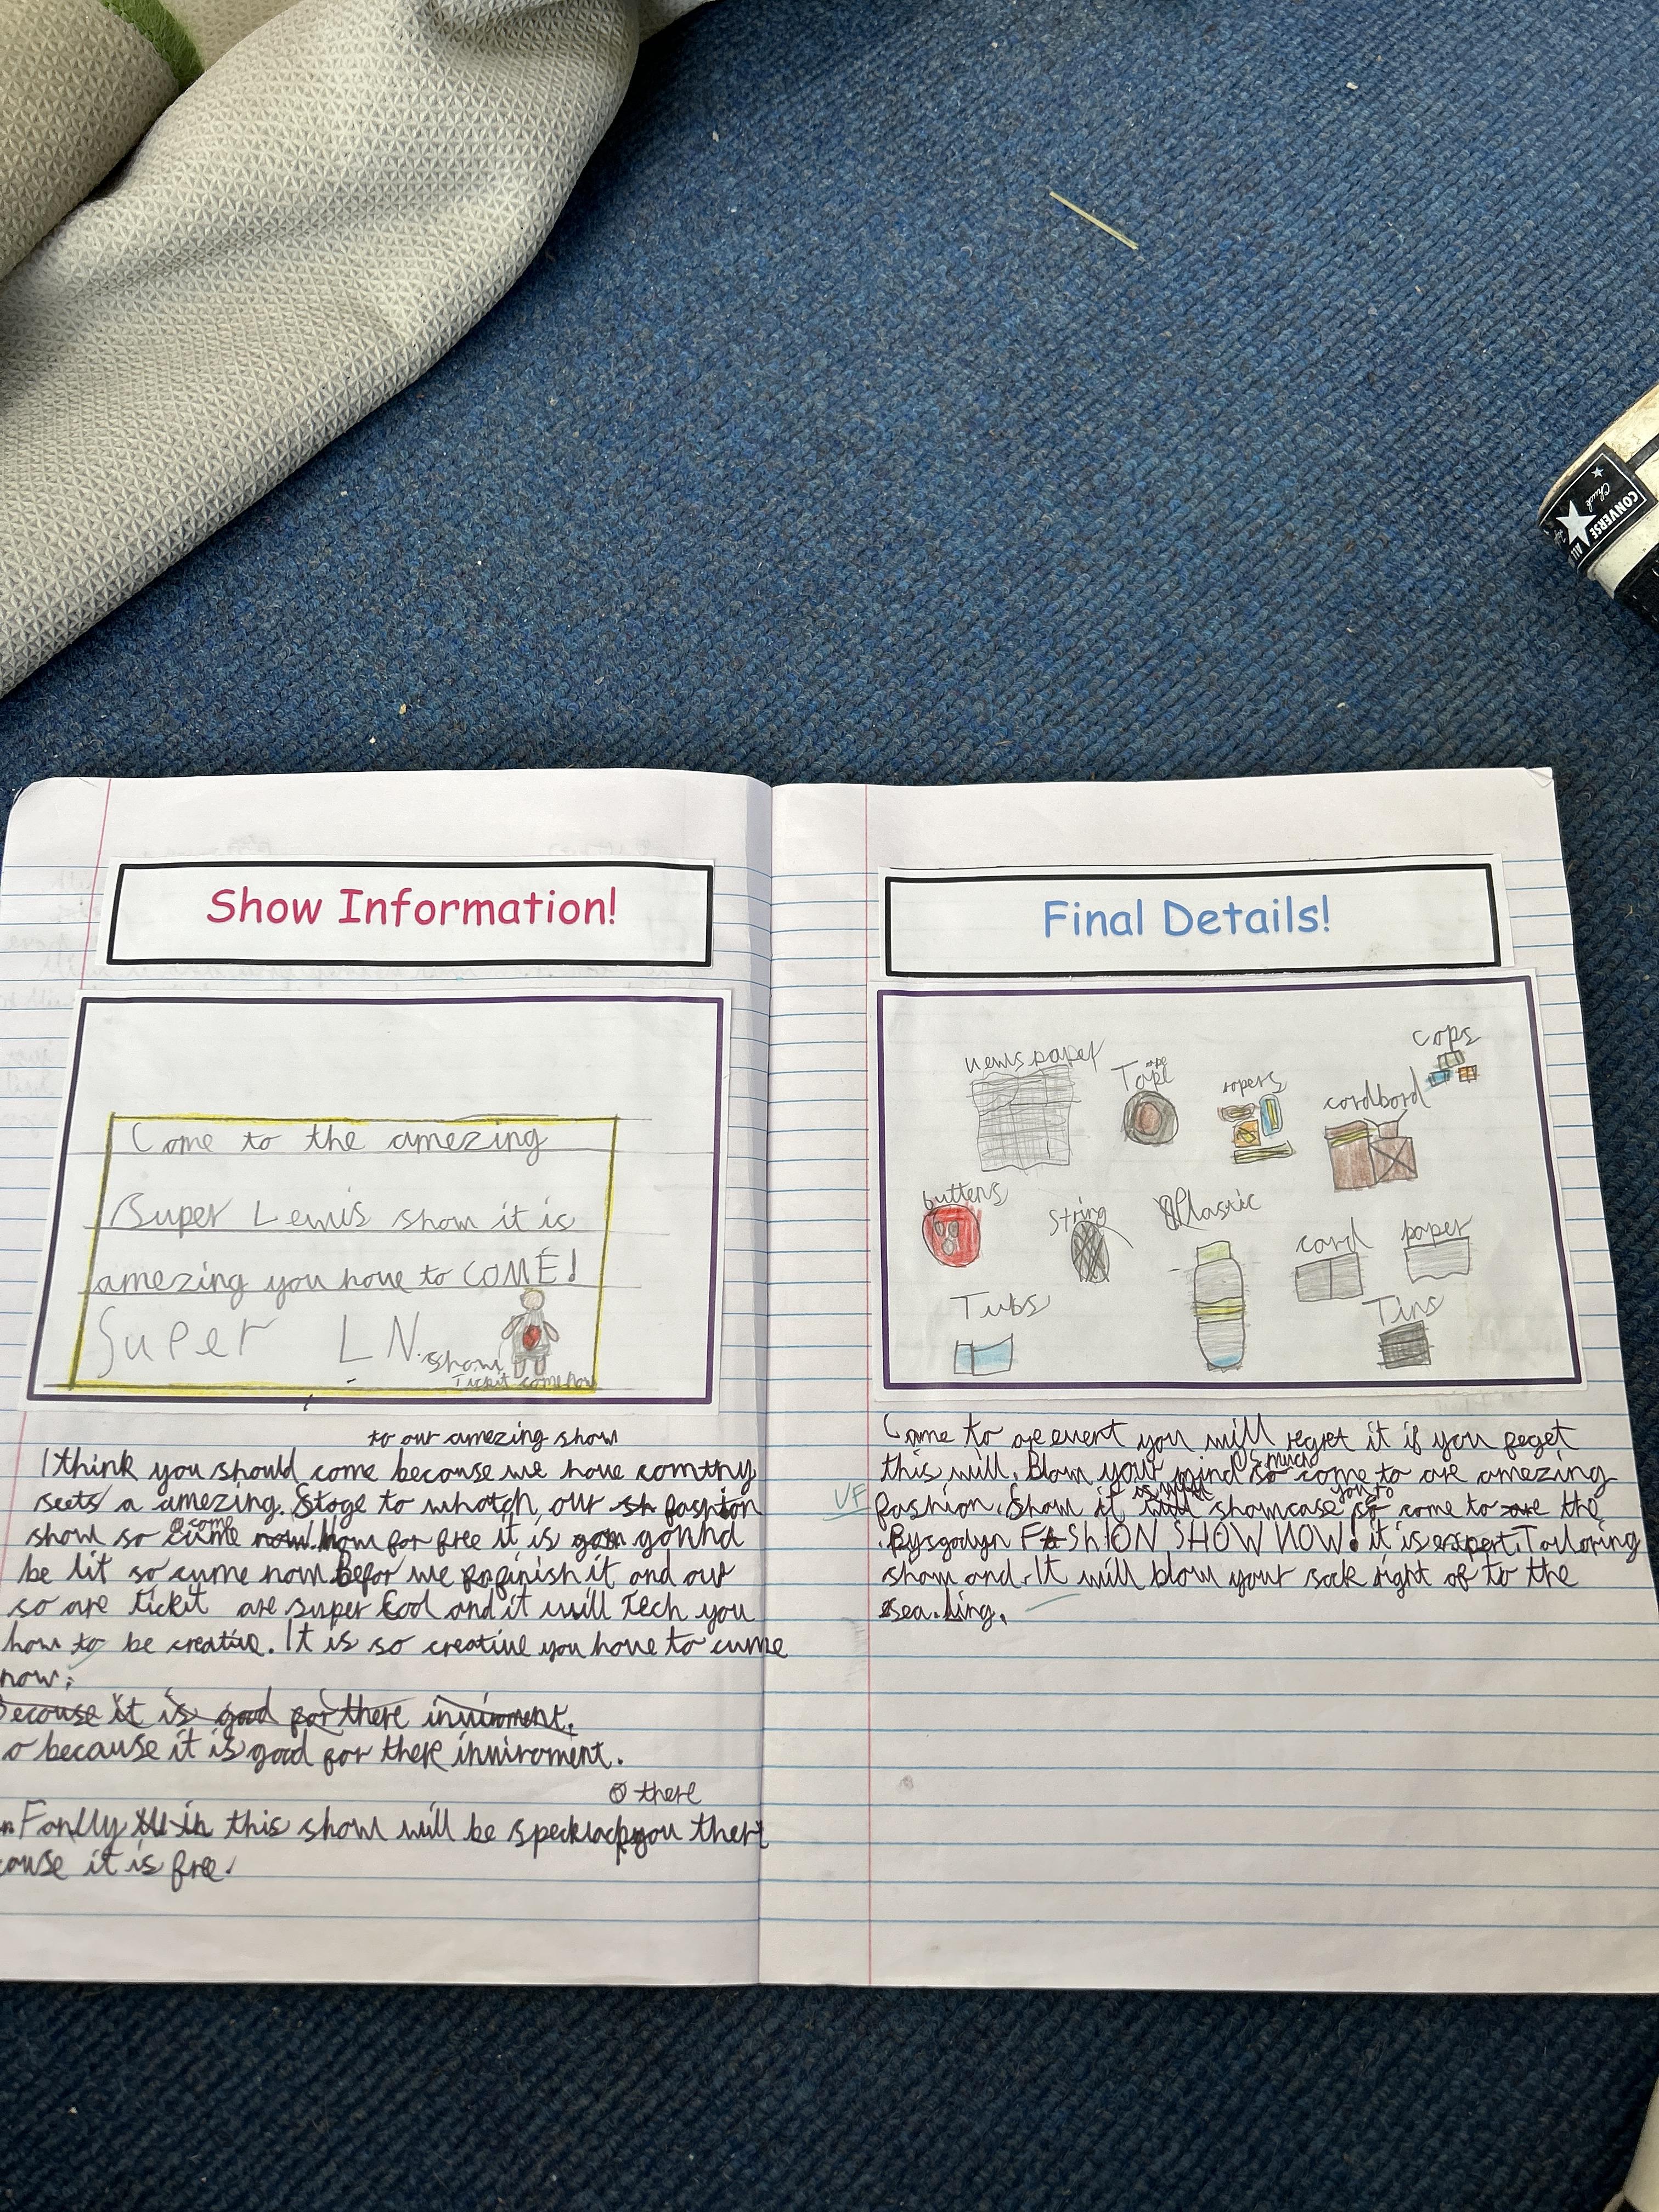 CONVERSE
ALL
Chuck
Show Information!
Come to the amezing
Super Lewis show it is
amezing you have to COME!
Super LN
show
Ticket come now
to our amezing show
I think you should come because we have comthy
seets a amezing. Stage to whatch our sh fashion
come
show so cume now. Now for free it is gon gonnd
be lit so cume now Befor we finish it and our
so are tickit are super Cool and it will Tech you
how to be creative. It is so creative you have to cume
now.
Because it is good for there inviroment.
o because it is good for there inviroment.
there
Fanlly in this show will be you there
cause it is free.
Final Details!
newspaper
Tape
ropers
cordbord
cops
buttens
String
Plastic
card
paper
Tubs
Tins
Come to are event you will regret it if you feget
much
this will. Blow your mind so come to are amezing
you to
VF
fashion. Show it will showcase so come to are the
Bysgodyn FASHION SHOW NOW! it is expert. Tailoring
show and. It will blow your sock right of to the
sea.ling.